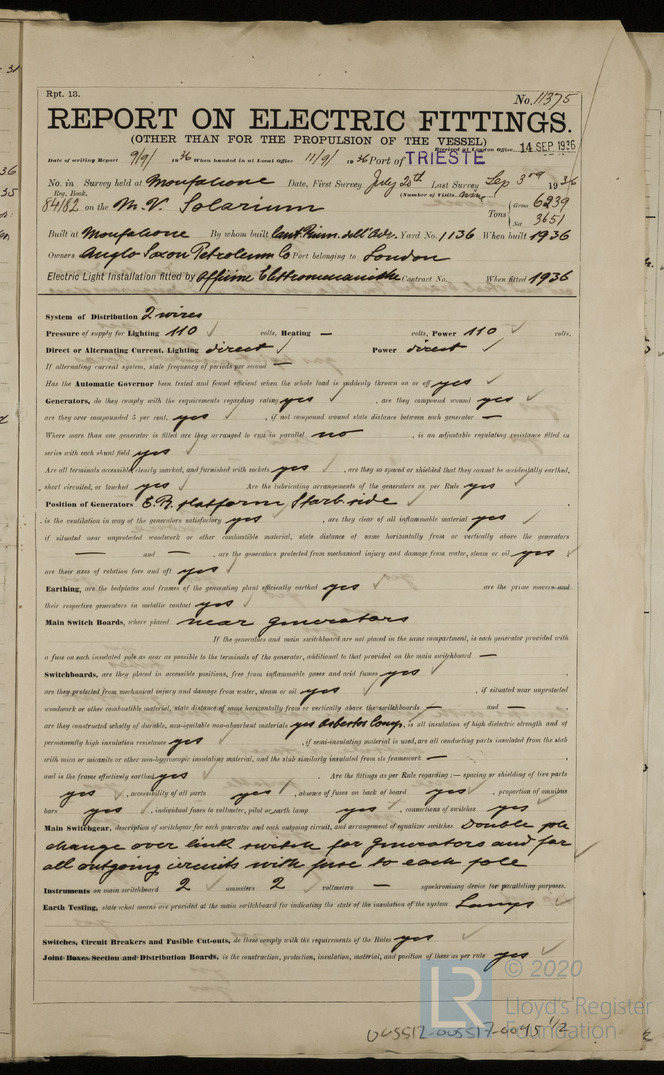 Rpt. 13.
No. 11375
REPORT ON ELECTRIC FITTINGS.
(OTHER THAN FOR THE PROPULSION OF THE VESSEL)
Received at London Office 14 SEP 1936
Date of writing Report 9/9/ 1936 When handed in at Local Office 11/9/ 1936 Port of TRIESTE
No. in Survey held at Monfalcone Date, First Survey July 20th Last Survey Sep 3rd 1936
Reg. Book. (Number of Visits nine
84182 on the M.V. Solarium Tons { Gross 6239
Net 3651
Built at Monfalcone By whom built Cant. Riun. dell'Adr. Yard No. 1136 When built 1936
Owners Anglo Saxon Petroleum Co Port belonging to London
Electric Light Installation fitted by Officine Elettromeccaniche Contract No. When fitted 1936
System of Distribution 2 wires
Pressure of supply for Lighting 110 volts, Heating — volts, Power 110 volts.
Direct or Alternating Current, Lighting direct Power direct
If alternating current system, state frequency of periods per second —
Has the Automatic Governor been tested and found efficient when the whole load is suddenly thrown on or off yes
Generators, do they comply with the requirements regarding rating yes , are they compound wound yes
are they over compounded 5 per cent. yes , if not compound wound state distance between each generator —
Where more than one generator is fitted are they arranged to run in parallel no , is an adjustable regulating resistance fitted in
series with each shunt field yes
Are all terminals accessible, clearly marked, and furnished with sockets yes , are they so spaced or shielded that they cannot be accidentally earthed,
short circuited, or touched yes Are the lubricating arrangements of the generators as per Rule yes
Position of Generators E.R. platform Starb side
, is the ventilation in way of the generators satisfactory yes , are they clear of all inflammable material yes
if situated near unprotected woodwork or other combustible material, state distance of same horizontally from or vertically above the generators
— and — , are the generators protected from mechanical injury and damage from water, steam or oil yes
are their axes of rotation fore and aft yes
Earthing, are the bedplates and frames of the generating plant efficiently earthed yes are the prime movers and
their respective generators in metallic contact yes
Main Switch Boards, where placed near generators
If the generators and main switchboard are not placed in the same compartment, is each generator provided with
a fuse on each insulated pole as near as possible to the terminals of the generator, additional to that provided on the main switchboard —
Switchboards, are they placed in accessible positions, free from inflammable gases and acid fumes yes
are they protected from mechanical injury and damage from water, steam or oil yes , if situated near unprotected
woodwork or other combustible material, state distance of same horizontally from or vertically above the switchboards — and — ,
are they constructed wholly of durable, non-ignitable non-absorbent materials yes Asbestos Comp. , is all insulation of high dielectric strength and of
permanently high insulation resistance yes , if semi-insulating material is used, are all conducting parts insulated from the slab
with mica or micanite or other non-hygroscopic insulating material, and the slab similarly insulated from its framework — ,
and is the frame effectively earthed yes . Are the fittings as per Rule regarding :— spacing or shielding of live parts
yes , accessibility of all parts yes , absence of fuses on back of board yes , proportion of omnibus
bars yes , individual fuses to voltmeter, pilot or earth lamp yes , connections of switches yes
Main Switchgear, description of switchgear for each generator and each outgoing circuit, and arrangement of equalizer switches Double pole
change over link switch for generators and for
all outgoing circuits with fuse to each pole
Instruments on main switchboard 2 ammeters 2 voltmeters — synchronising device for paralleling purposes.
Earth Testing, state what means are provided at the main switchboard for indicating the state of the insulation of the system Lamps
Switches, Circuit Breakers and Fusible Cut-outs, do these comply with the requirements of the Rules yes
Joint Boxes Section and Distribution Boards, is the construction, protection, insulation, material, and position of these as per rule yes
© 2020
Lloyd's Register
Foundation
005512-005517-0095 1/2